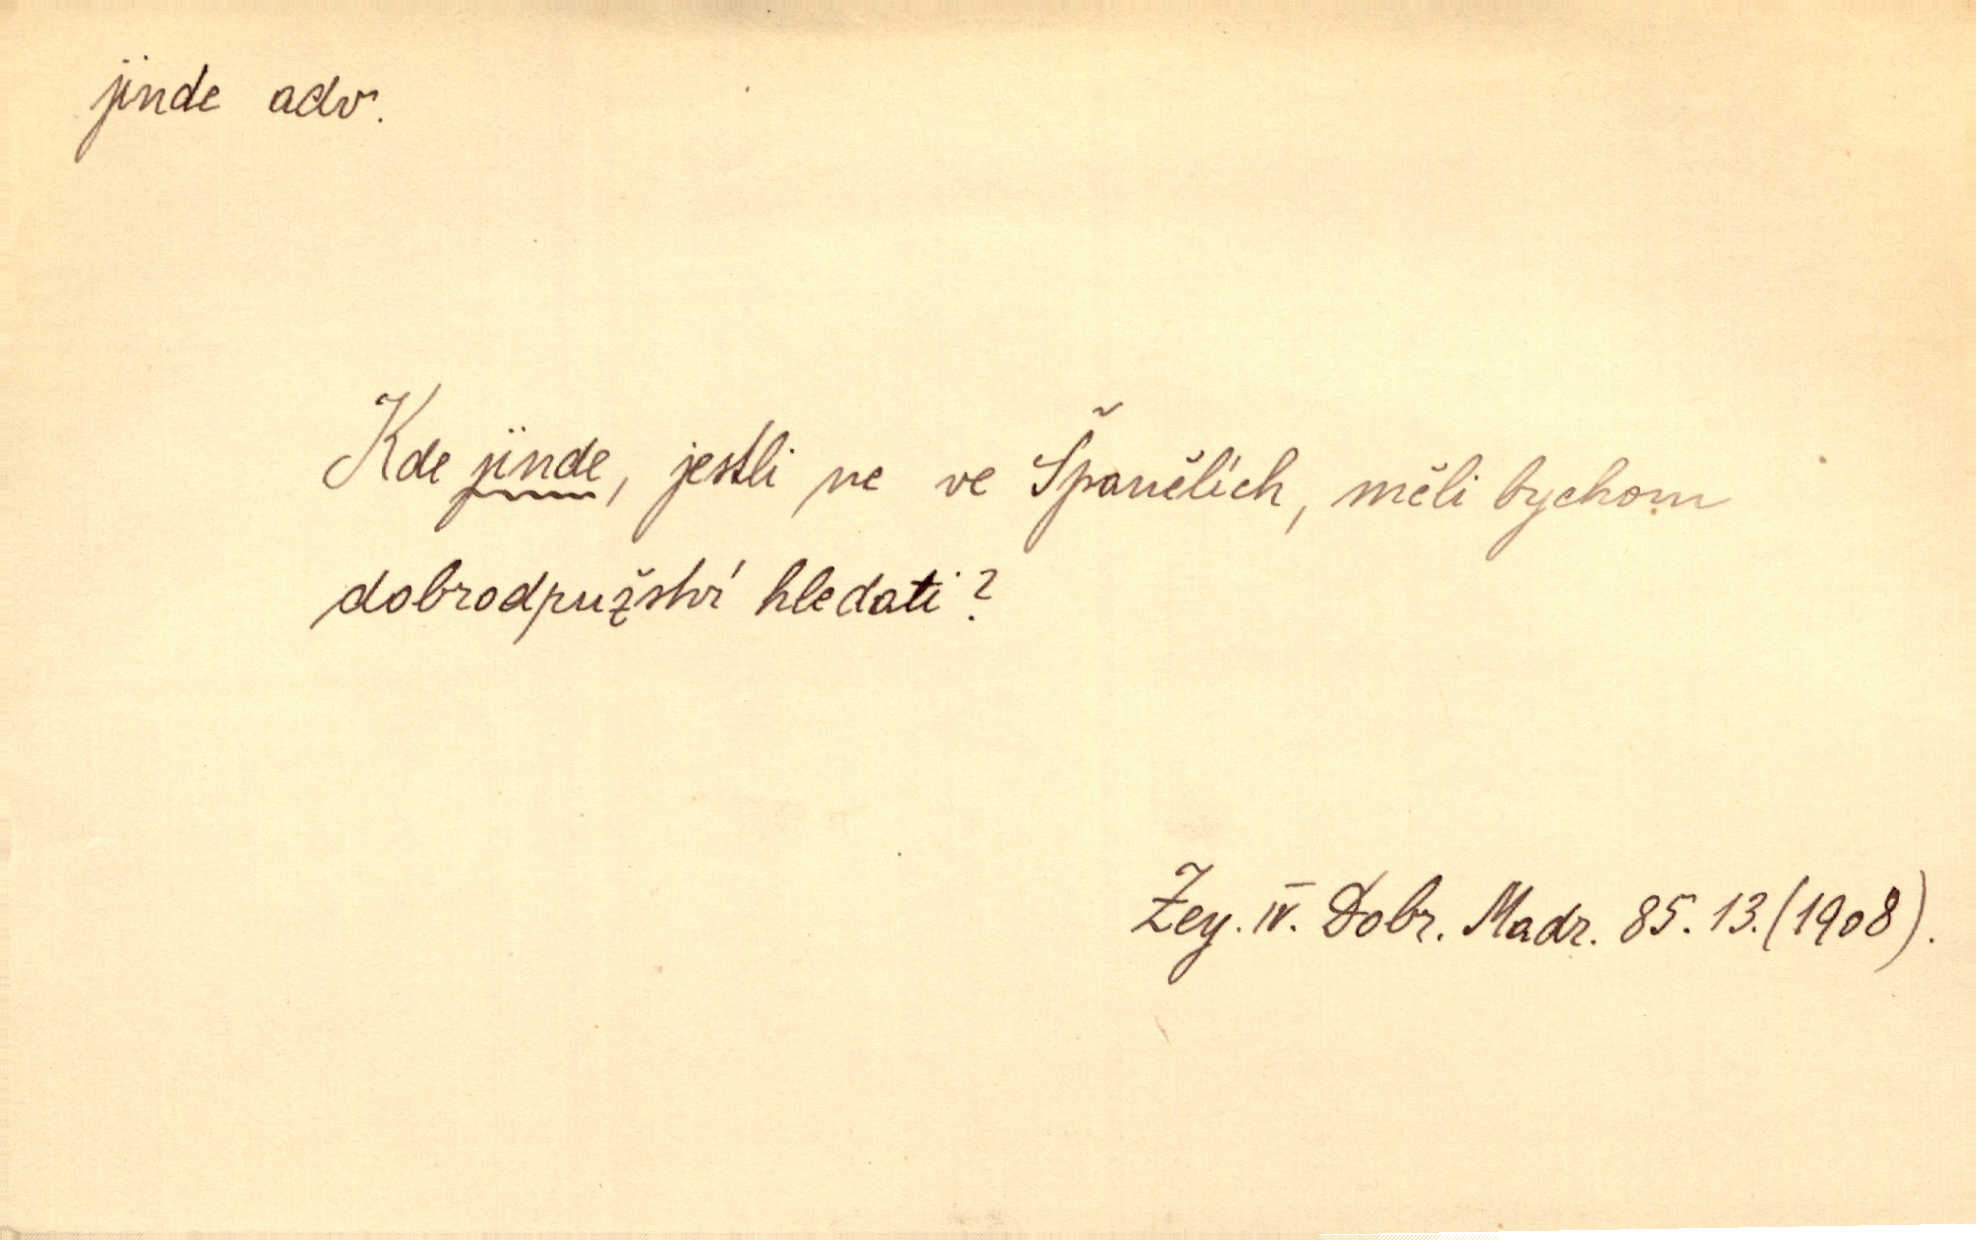 jinde adv.
Kde jinde, jestli ne ve Španělích, měli bychom
dobrodpužství hledati?
Zey. IV. Dobr. Madr. 85. 13. (1908).